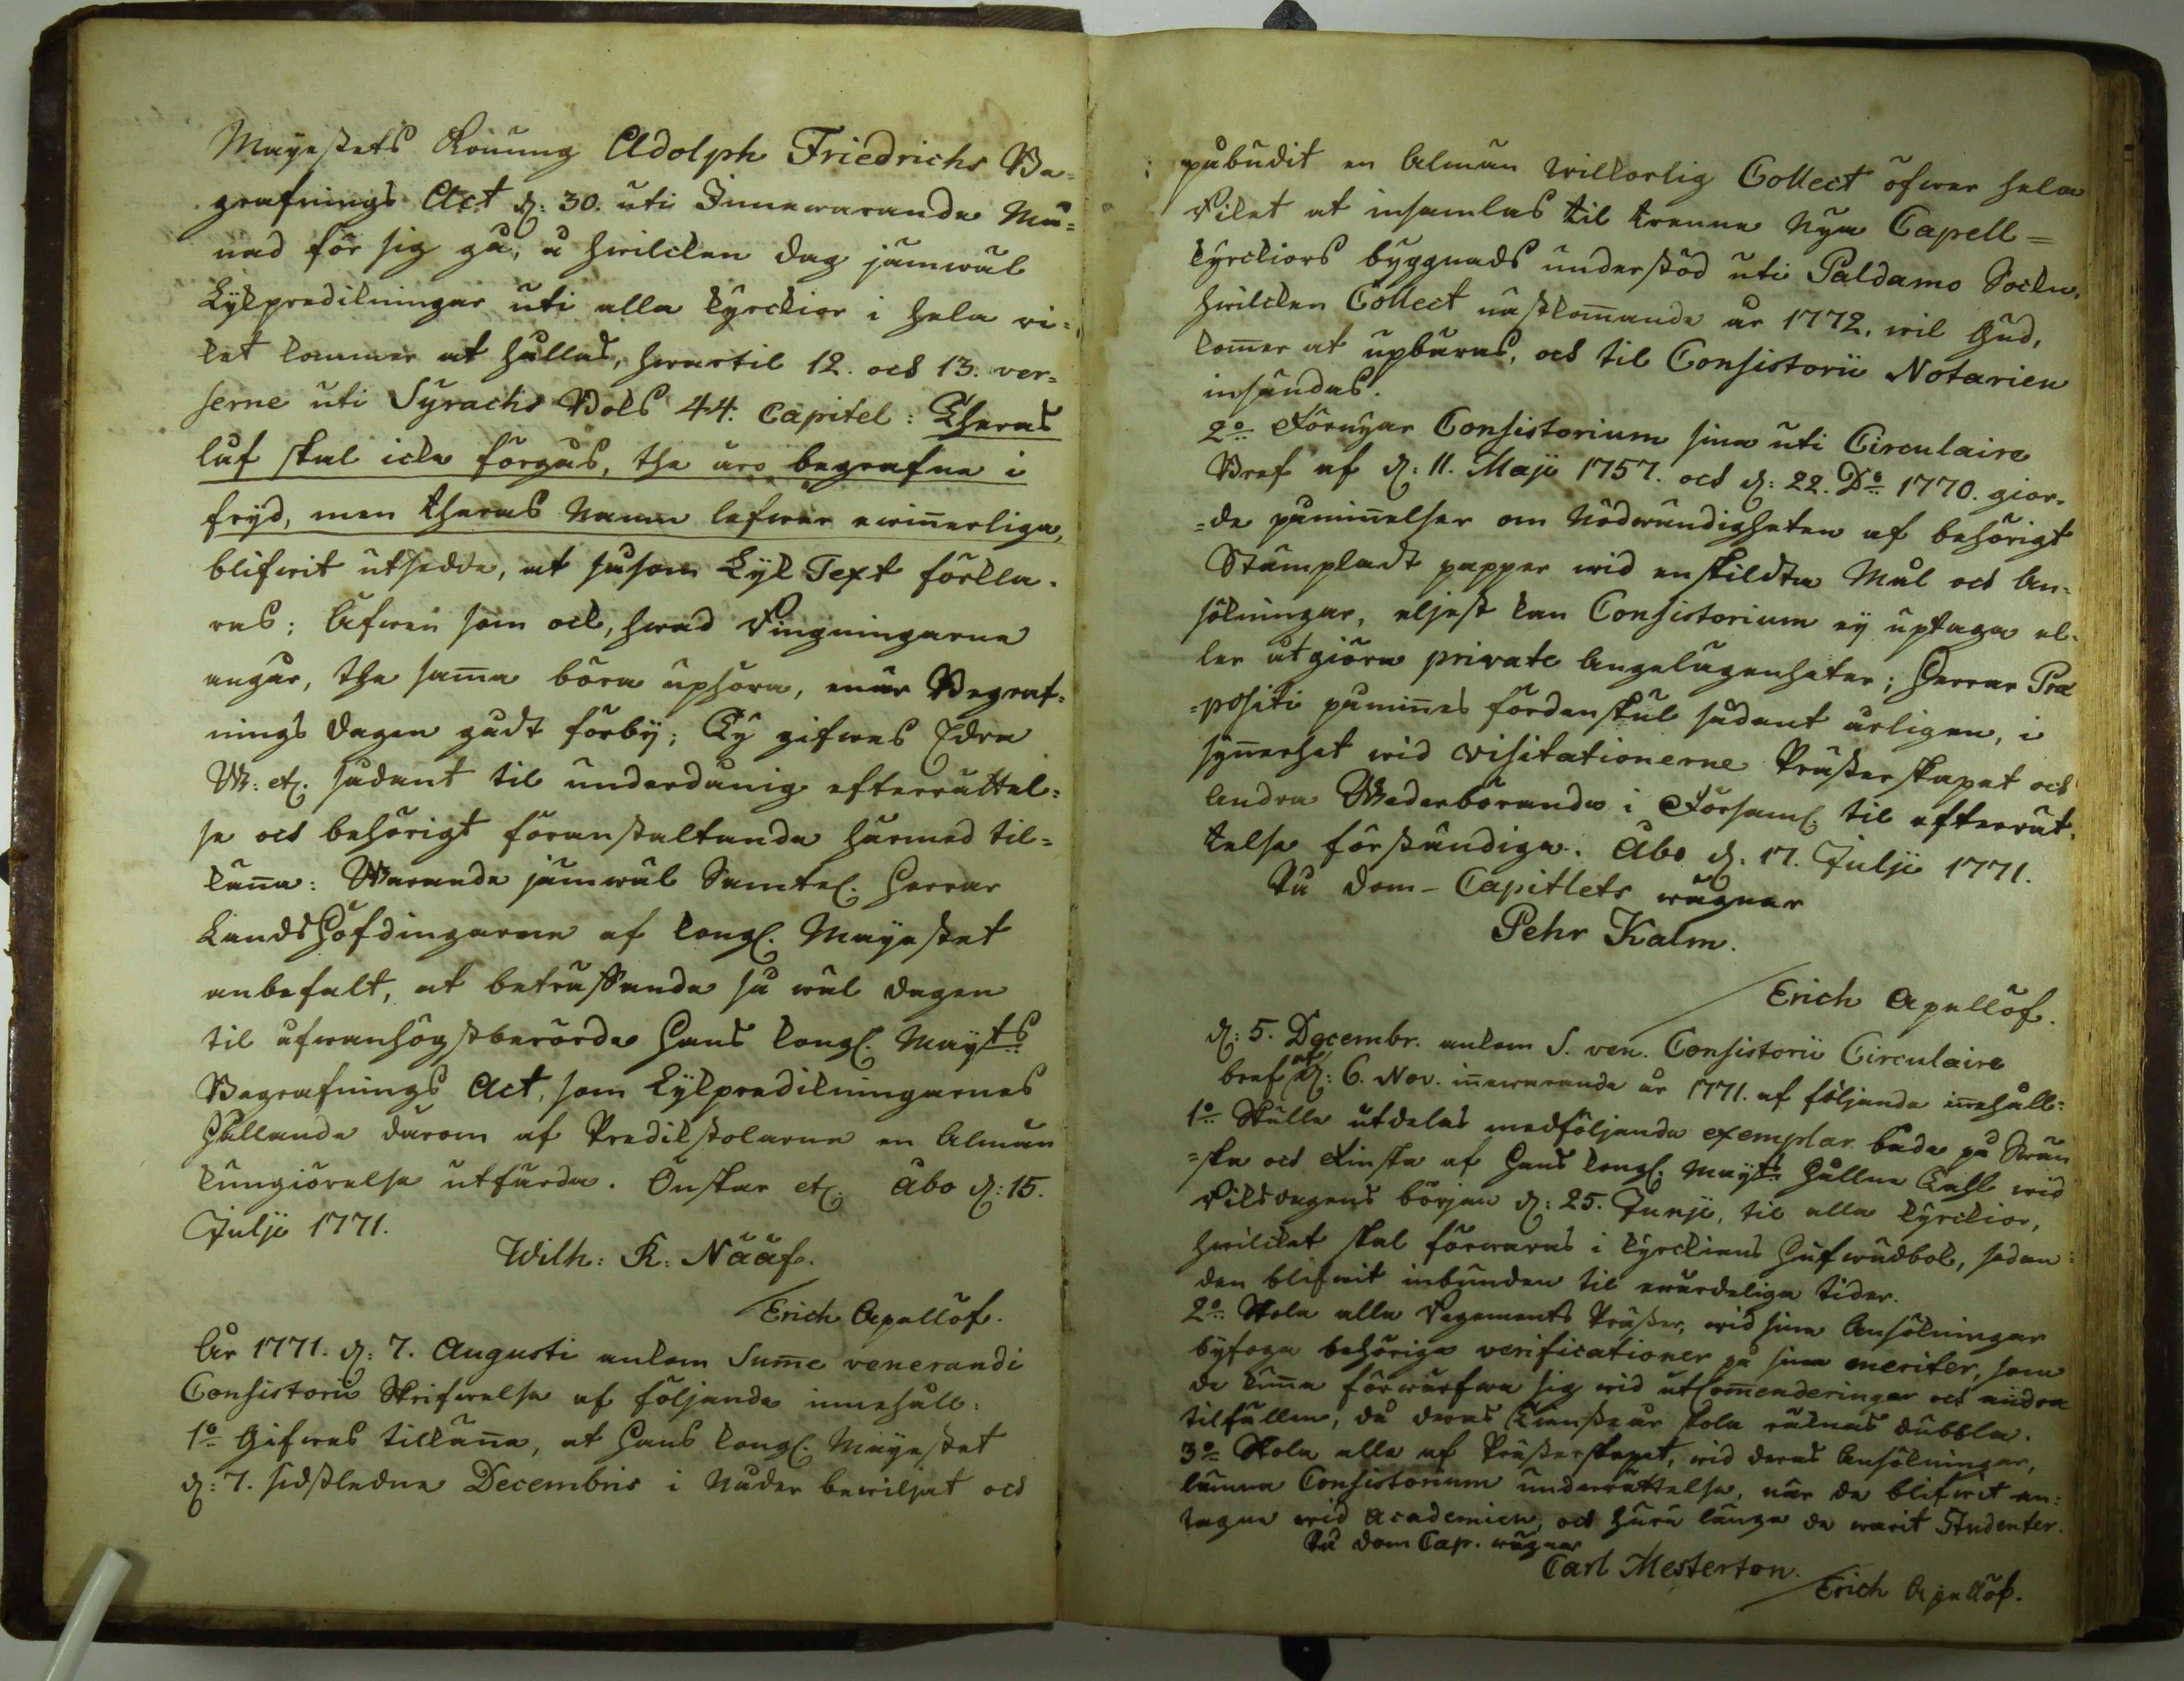 Mayestets Konung Adolph Friedrichs Be-
grafnings Act d: 30. uti Innewarande Må-
nad för sig gå, å hwilcken dag jämwäl
Lijkpredikningar uti alla kyrckior i hela ri-
ket kommer at hållas, hwartil 12. och 13. ver-
serne uti Syrachs Boks 44. Capitel: Theras
låf skal icke förgås, the äro begrafne i
frijd, men theras Namn lefwer ewiñerliga,
blifwit utsedde, at såsom Lijk Text förkla-
ras; Äfwen som ock, hwad Ringningarne
angår, the sam̃a böra uphöra, när Begraf-
nings dagen gådt förbij; Ty gifwes Edra
W: etc. sådant til underdånig efterrättel-
se och behörigt föranstaltande härmed til-
käña: Warande jämwäl Samtel. Herrar
Landshöfdingarne af kongl. Mayestet
anbefalt, at beträffande så wäl dagen
til äfwanhögstberörde Hans kongl. Mayts
Begrafnings Act, som Lijkpredikningarnes
Hållande därom af Predikstolarne en Almän
kungiörelse utfärda. Önskar etc. Åbo d: 15.
Julji 1771.
Wilh: R: Nääf.
Erich Apellöf.
År 1771. d: 7. Augusti ankom Sum̃e venerandi
Consistorii Skrifwelse af följande innehåll:
1o Gifwes tilkäña, at Hans kongl. Mayestet
d: 7. sidstledne Decembris i Nåder bewiljat och
påbudit en Almän willkorlig Collect öfwer hela
Riket at insamlas til trenne Nya Capell-
kyrckiors byggnads understöd uti Paldamo Sockn,
hwilcken Collect nästkom̃ande år 1772. wil Gud,
kom̃er at upbäras, och til Consistorii Notarien
insändas.
2o Förnyar Consistorium sina uti Circulaire
Bref af d: 11. Maji 1757. och d: 22. Do 1770. gior-
=de påmiñelser om Nödwändigheten af behörigt
Stämpladt papper wid enskildta Mål och An-
sökningar, eljest kan Consistorium ej uptaga el-
ler utgiöra private Angelägenheter; Herrar Præ
=positi påmiñes fördenskul sådant årligen, i
syñerhet wid visitationerne Prästerskapet och
Andra Wederbörande i Församl. til efterrät-
telse förständiga. Åbo d: 17. Julji 1771.
På Dom-Capitlets wägnar
Pehr Kalm.
Erich Apellöf.
d: 5. Decembr. ankom S. ven. Consistorii Circulaire
bref af d: 6. Nov. iñewarande år 1771. af följande iñehåll:
1o Skulle utdelas medföljande exemplar både på Swän
=ska och Finska af Hans kongl. Mayts Hållne Tahl wid
Riksdagens början d: 25. Junji, til alla kyrckior,
hwilcket skal förwaras i kyrckians Hufwudbok, sedan
den blifwit inbunden til ewärdeliga tider.
2o Skola alla Regements Präster, wid sina Ansökningar
byfoga behöriga verificationer på sina meriter, som
de kuña förwärfwa sig wid utcom̃enderingar och andra
tilfällen, då deras Tienste år skola räknas dubbla.
3o Skola alla af Prästerskapet, wid deras Ansökningar,
lämna Consistorium underrättelse, när de blifwit an-
tagne wid Academien, och huru länge de warit Studenter.
På Dom Cap. wägnar
Carl Mesterton.
Erich Apellöf.